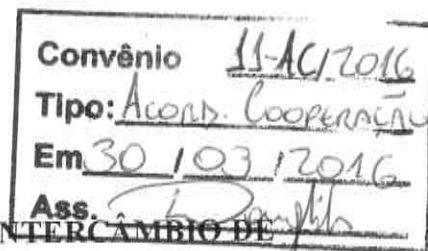 Convênio 11-AC/2016
Tipo: Acord. Cooperação
Em 30 / 03 / 2016
Ass.
INTERCÂMBIO DE